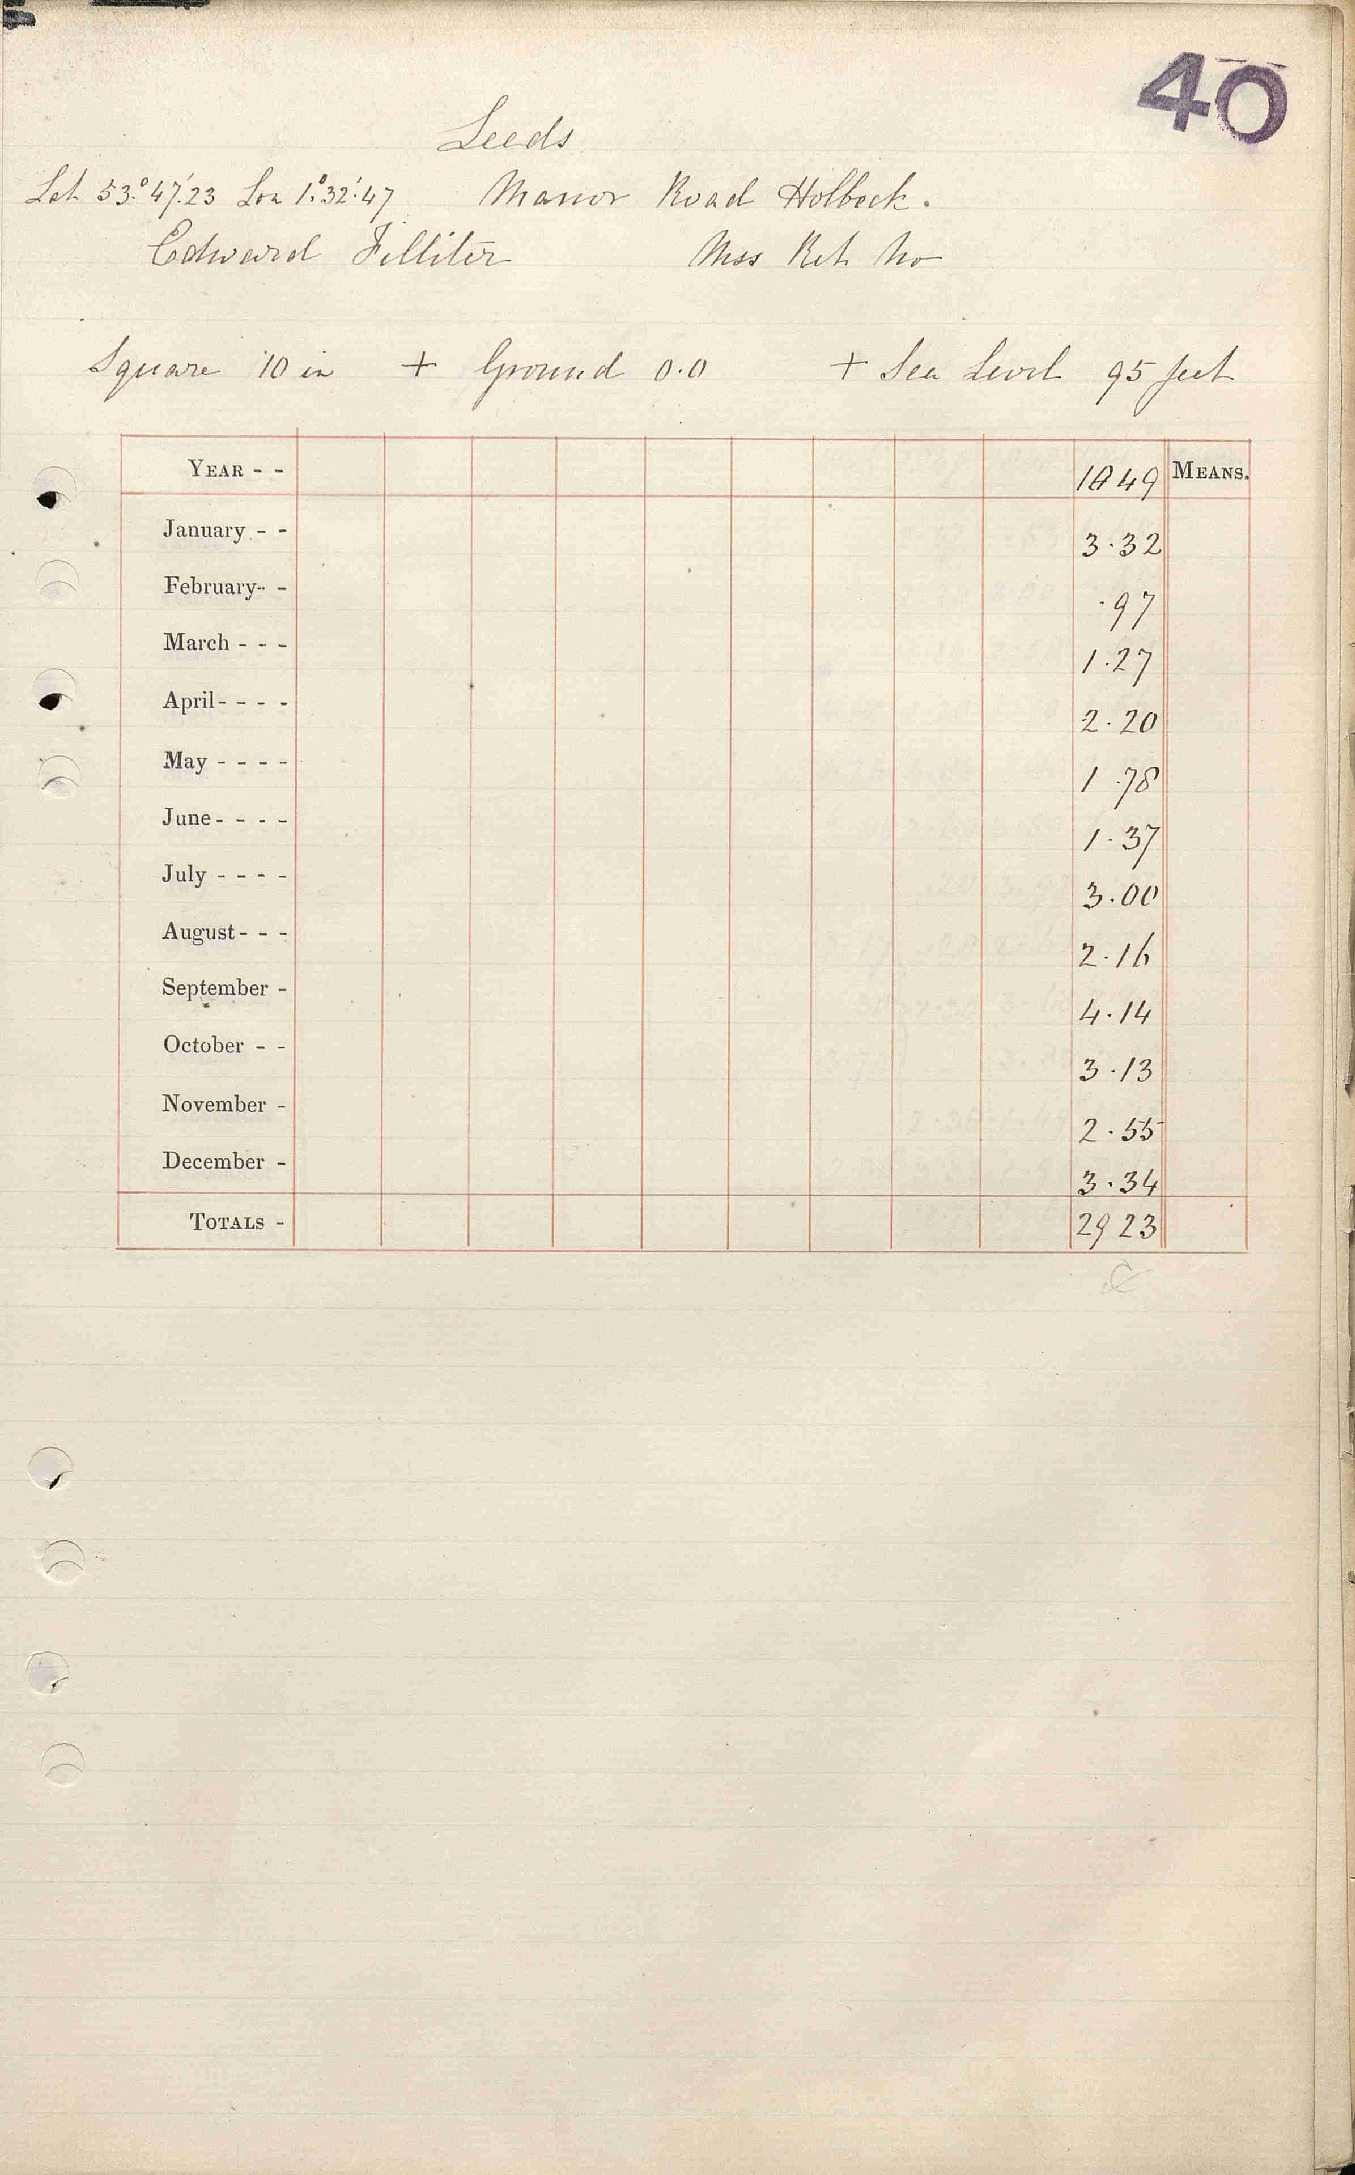 40
Leeds
Lat 53°.47'.23 Lon 1°.32'.47 Manor Road Holbeck.
Edward Filliter Mss Ret No
Square 10 in + Ground 0.0 + Sea Level 95 feet
YEAR - - 1849 MEANS.
January - - 3.32
February - - .97
March - - - 1.27
April - - - - 2.20
May - - - - 1.78
June - - - - 1.37
July - - - - 3.00
August - - - 2.16
September - 4.14
October - - 3.13
November - 2.55
December - 3.34
TOTALS - 29 23